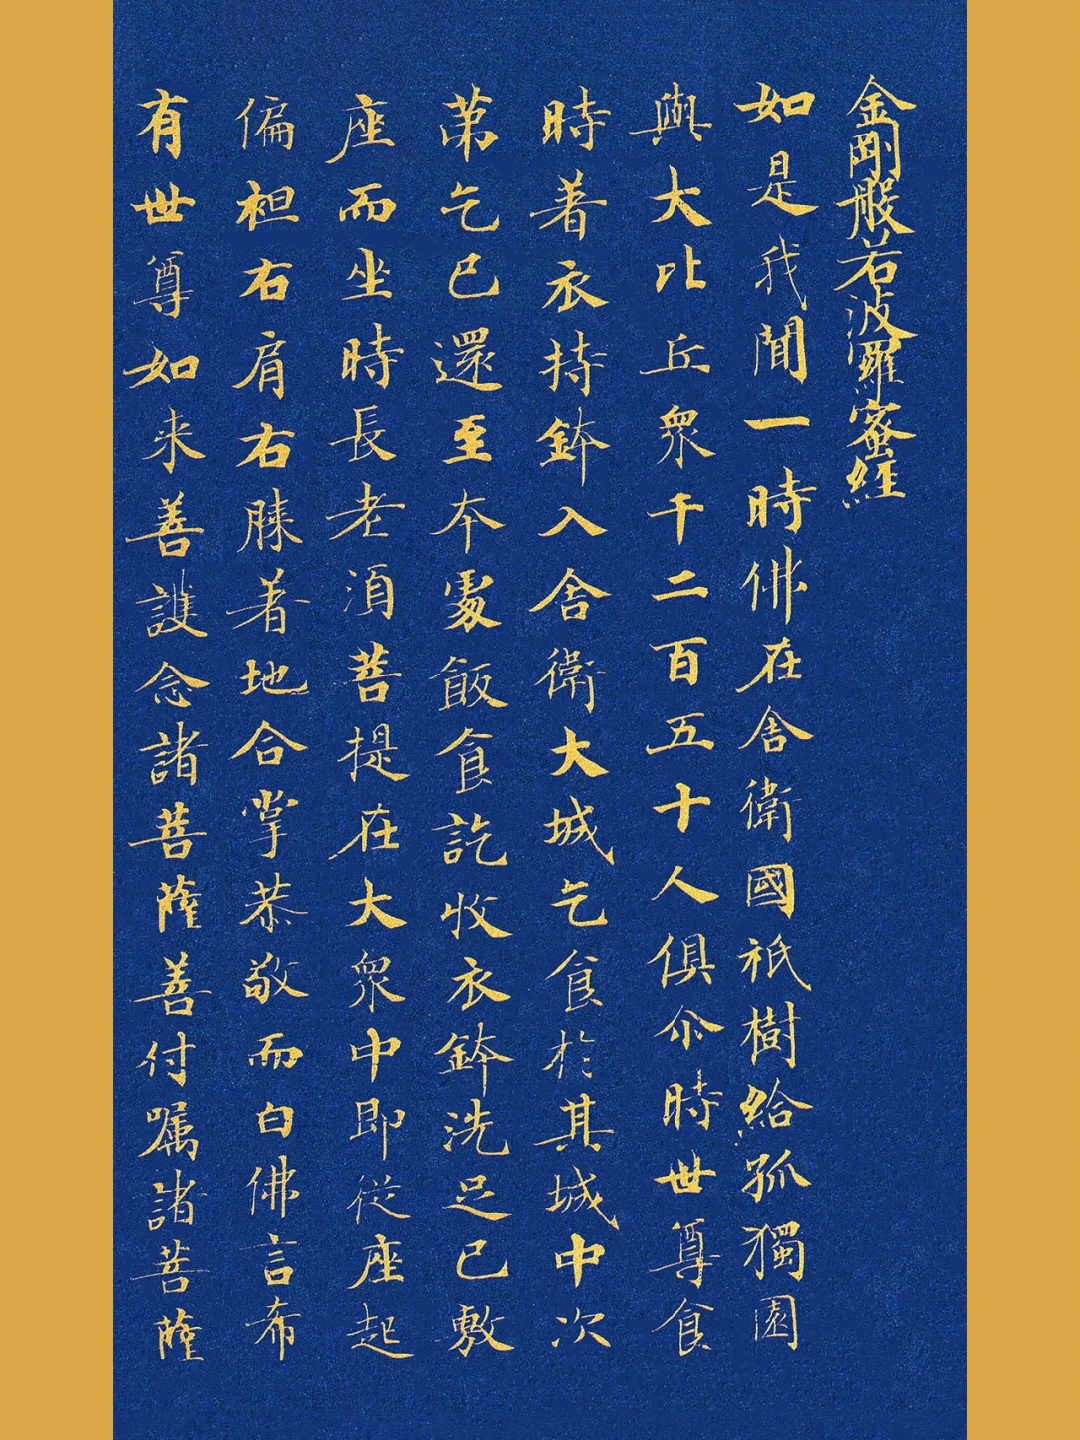 金剛般若波羅蜜經
如是我聞一時佛在舍衛國祇樹給孤獨園
與大比丘眾千二百五十人俱尒時世尊食
時著衣持鉢入舍衛大城乞食於其城中次
苐乞已還至本處飯食訖收衣鉢洗足已敷
座而坐時長老須菩提在大眾中即從座起
偏袒右肩右膝著地合掌恭敬而白佛言希
有世尊如来善護念諸菩薩善付嘱諸菩薩